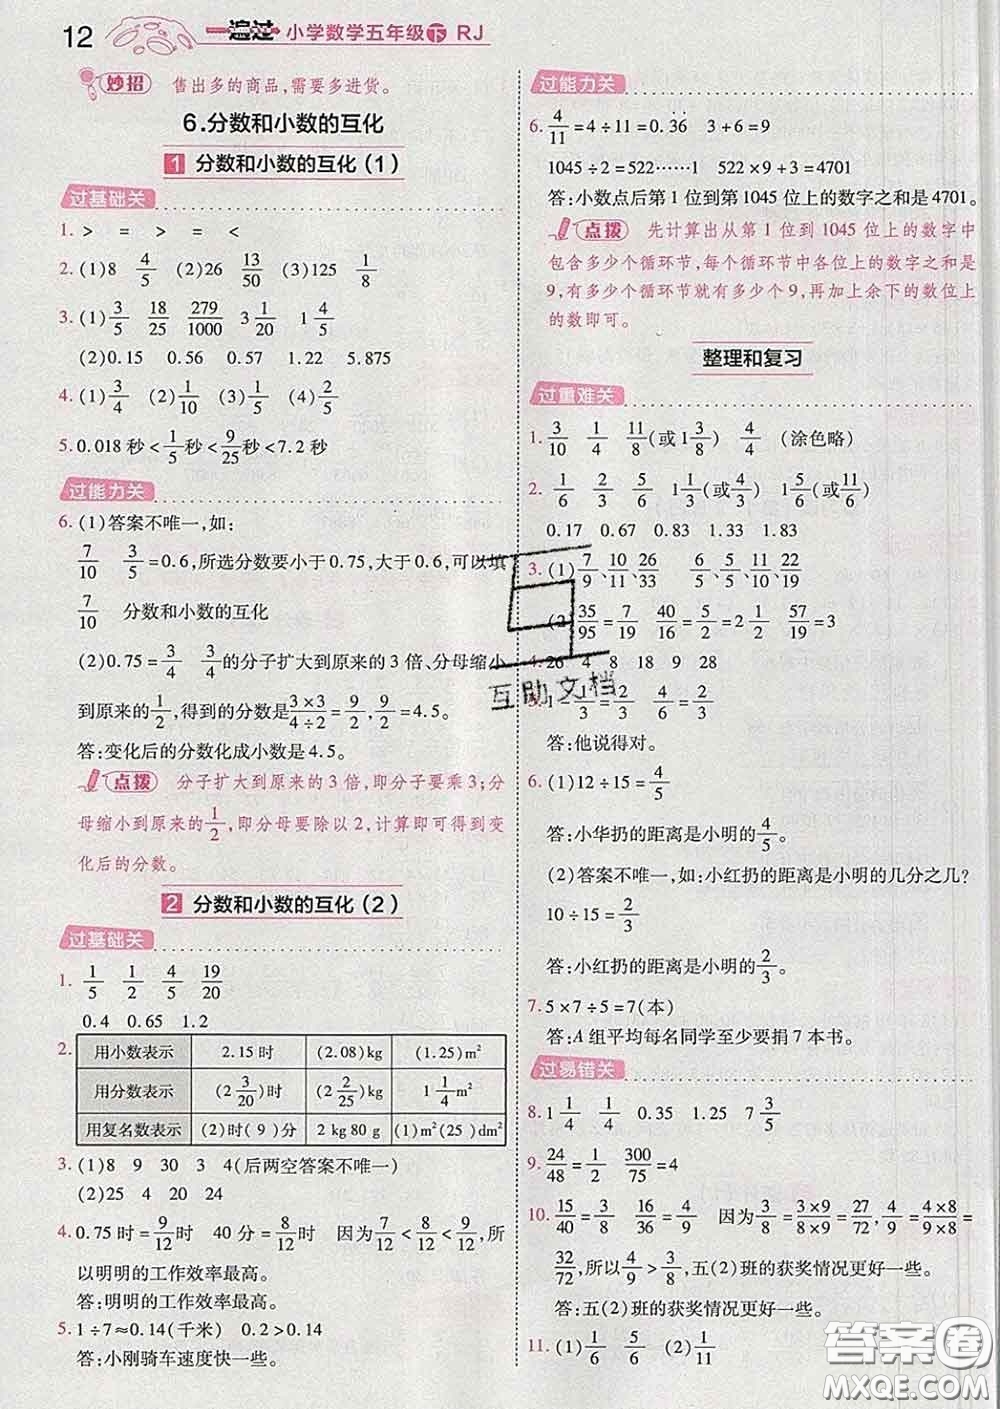 12 一遍过 小学数学五年级下 RJ
妙招 售出多的商品,需要多进货。
6.分数和小数的互化
1 分数和小数的互化(1)
过基础关
1. > = > = <
2. (1)8 4/5 (2)26 13/50 (3)125 1/8
3. (1)3/5 18/25 279/1000 3 1/20 1 4/5
(2)0.15 0.56 0.57 1.22 5.875
4. (1)3/4 (2)1/10 (3)1/5 (4)4/5
5. 0.018秒<1/5秒<9/25秒<7.2秒
过能力关
6. (1)答案不唯一,如:
7/10 3/5=0.6,所选分数要小于0.75,大于0.6,可以填
7/10 分数和小数的互化
(2)0.75=3/4 3/4的分子扩大到原来的3倍、分母缩小
到原来的1/2,得到的分数是3×3/4÷2=9/2,9/2=4.5。
答:变化后的分数化成小数是4.5。
点拨 分子扩大到原来的3倍,即分子要乘3;分
母缩小到原来的1/2,即分母要除以2,计算即可得到变
化后的分数。
2 分数和小数的互化(2)
过基础关
1. 1/5 1/2 4/5 19/20
0.4 0.65 1.2
2. 用小数表示 2.15时 (2.08)kg (1.25)m²
用分数表示 (2 3/20)时 (2 2/25)kg 1 1/4 m²
用复名数表示 (2)时(9)分 2 kg 80 g (1)m²(25)dm²
3. (1)8 9 30 3 4(后两空答案不唯一)
(2)25 4 24 20
4. 0.75时=9/12时 40分=8/12时 因为7/12<8/12<9/12,所
以明明的工作效率最高。
答:明明的工作效率最高。
5. 1÷7≈0.14(千米) 0.2>0.14
答:小刚骑车速度快一些。
过能力关
6. 4/11=4÷11=0.3̇6̇ 3+6=9
1045÷2=522……1 522×9+3=4701
答:小数点后第1位到第1045位上的数字之和是4701。
点拨 先计算出从第1位到1045位上的数字中
包含多少个循环节,每个循环节中各位上的数字之和是
9,有多少个循环节就有多少个9,再加上余下的数位上
的数即可。
整理和复习
过重难关
1. 3/10 1/4 11/8(或1 3/8) 4/4 (涂色略)
2. 1/6 2/3 5/6 1 1/3(或4/3) 1 5/6(或11/6)
0.17 0.67 0.83 1.33 1.83
3. (1)7/9、10/11、26/33 5/6、5/5、11/10、22/19
(2)35/95=7/19 40/16=5/2=2 1/2 57/19=3
4. 26 4 8 18 9 28
5. 1-1/3=2/3 4/6=2/3
答:他说得对。
6. (1)12÷15=4/5
答:小华扔的距离是小明的4/5。
(2)答案不唯一,如:小红扔的距离是小明的几分之几?
10÷15=2/3
答:小红扔的距离是小明的2/3。
7. 5×7÷5=7(本)
答:A组平均每名同学至少要捐7本书。
过易错关
8. 1 1/4 1/4 0.35 1.25 7 3/5
9. 24/48=1/2 300/75=4
10. 15/40=3/8 16/36=4/9 因为3/8=3×9/8×9=27/72,4/9=4×8/9×8=
32/72,所以4/9>3/8,五(2)班的获奖情况更好一些。
答:五(2)班的获奖情况更好一些。
11. (1)1/6 5/6 (2)1/11
互助文档
答案圈
MXQE.COM